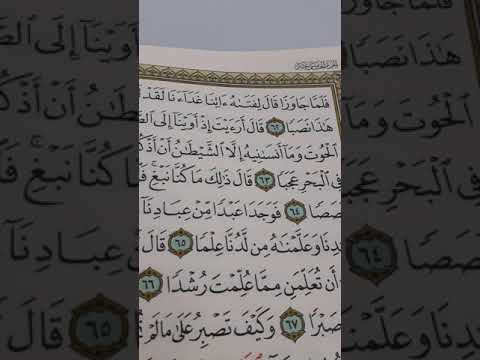 فَلَمَّا جَاوَزَا قَالَ لِفَتَىٰهُ ءَاتِنَا غَدَآءَنَا لَقَدْ
هَٰذَا نَصَبًا ٦٢ قَالَ أَرَءَيْتَ إِذْ أَوَيْنَآ إِلَى
ٱلْحُوتَ وَمَآ أَنسَىٰنِيهُ إِلَّا ٱلشَّيْطَٰنُ أَنْ
فِي ٱلْبَحْرِ عَجَبًا ٦٣ قَالَ ذَٰلِكَ مَا كُنَّا نَبْغِ
٦٤ فَوَجَدَا عَبْدًا مِّنْ عِبَادِنَآ
وَعَلَّمْنَٰهُ مِن لَّدُنَّا عِلْمًا ٦٥ قَالَ
أَن تُعَلِّمَنِ مِمَّا عُلِّمْتَ رُشْدًا ٦٦
صَبْرًا ٦٧ وَكَيْفَ تَصْبِرُ عَلَىٰ مَا لَمْ